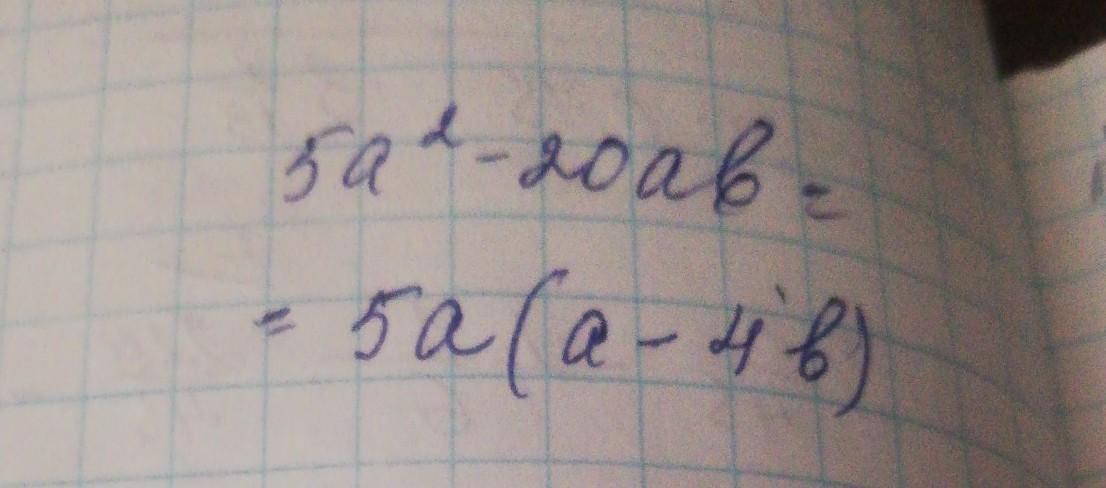 5a² - 20ab =
= 5a(a - 4b)